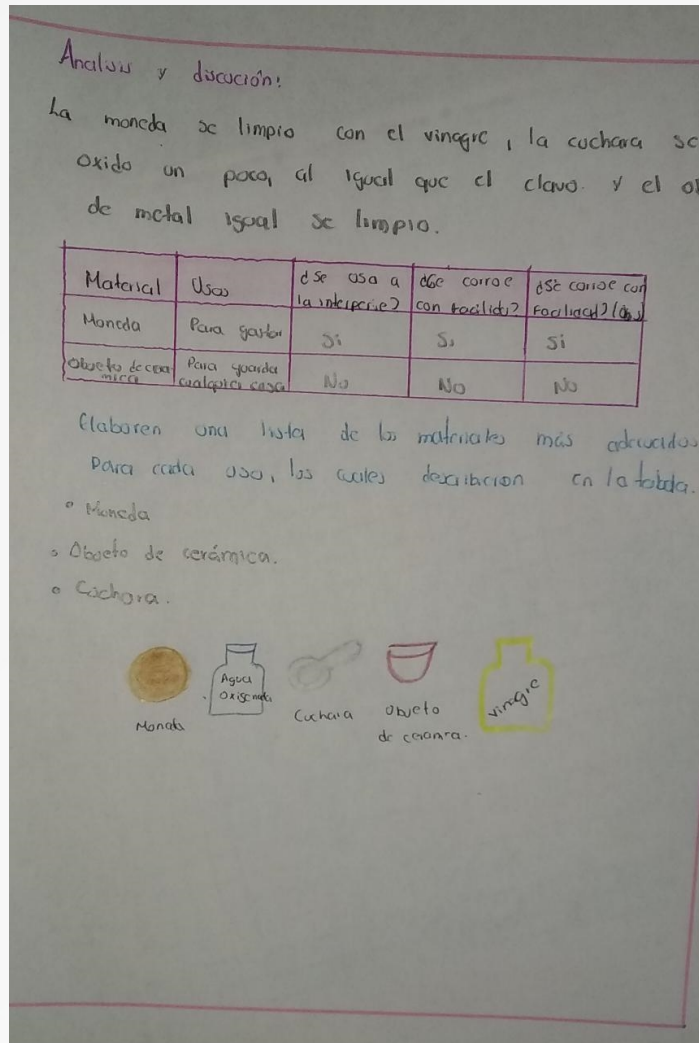 Analisis y discución:
La moneda se limpio con el vinagre, la cuchara se
oxido un poco, al igual que el clavo. y el
de metal igual se limpio.
Material Usos ¿Se usa a la interperie? ¿Se corroe con facilidad? ¿Se corroe con facilidad?
Moneda Para gastar Si Si Si
Objeto de ceramica Para guarda cualquier cosa No No No
Elaboren una lista de los materiales más adecuados
para cada uso, los cuales en la tabla.
• Moneda
• Objeto de cerámica.
• Cuchara.
Agua
Oxigenada
vinagre
Moneda
Cuchara
Objeto
de